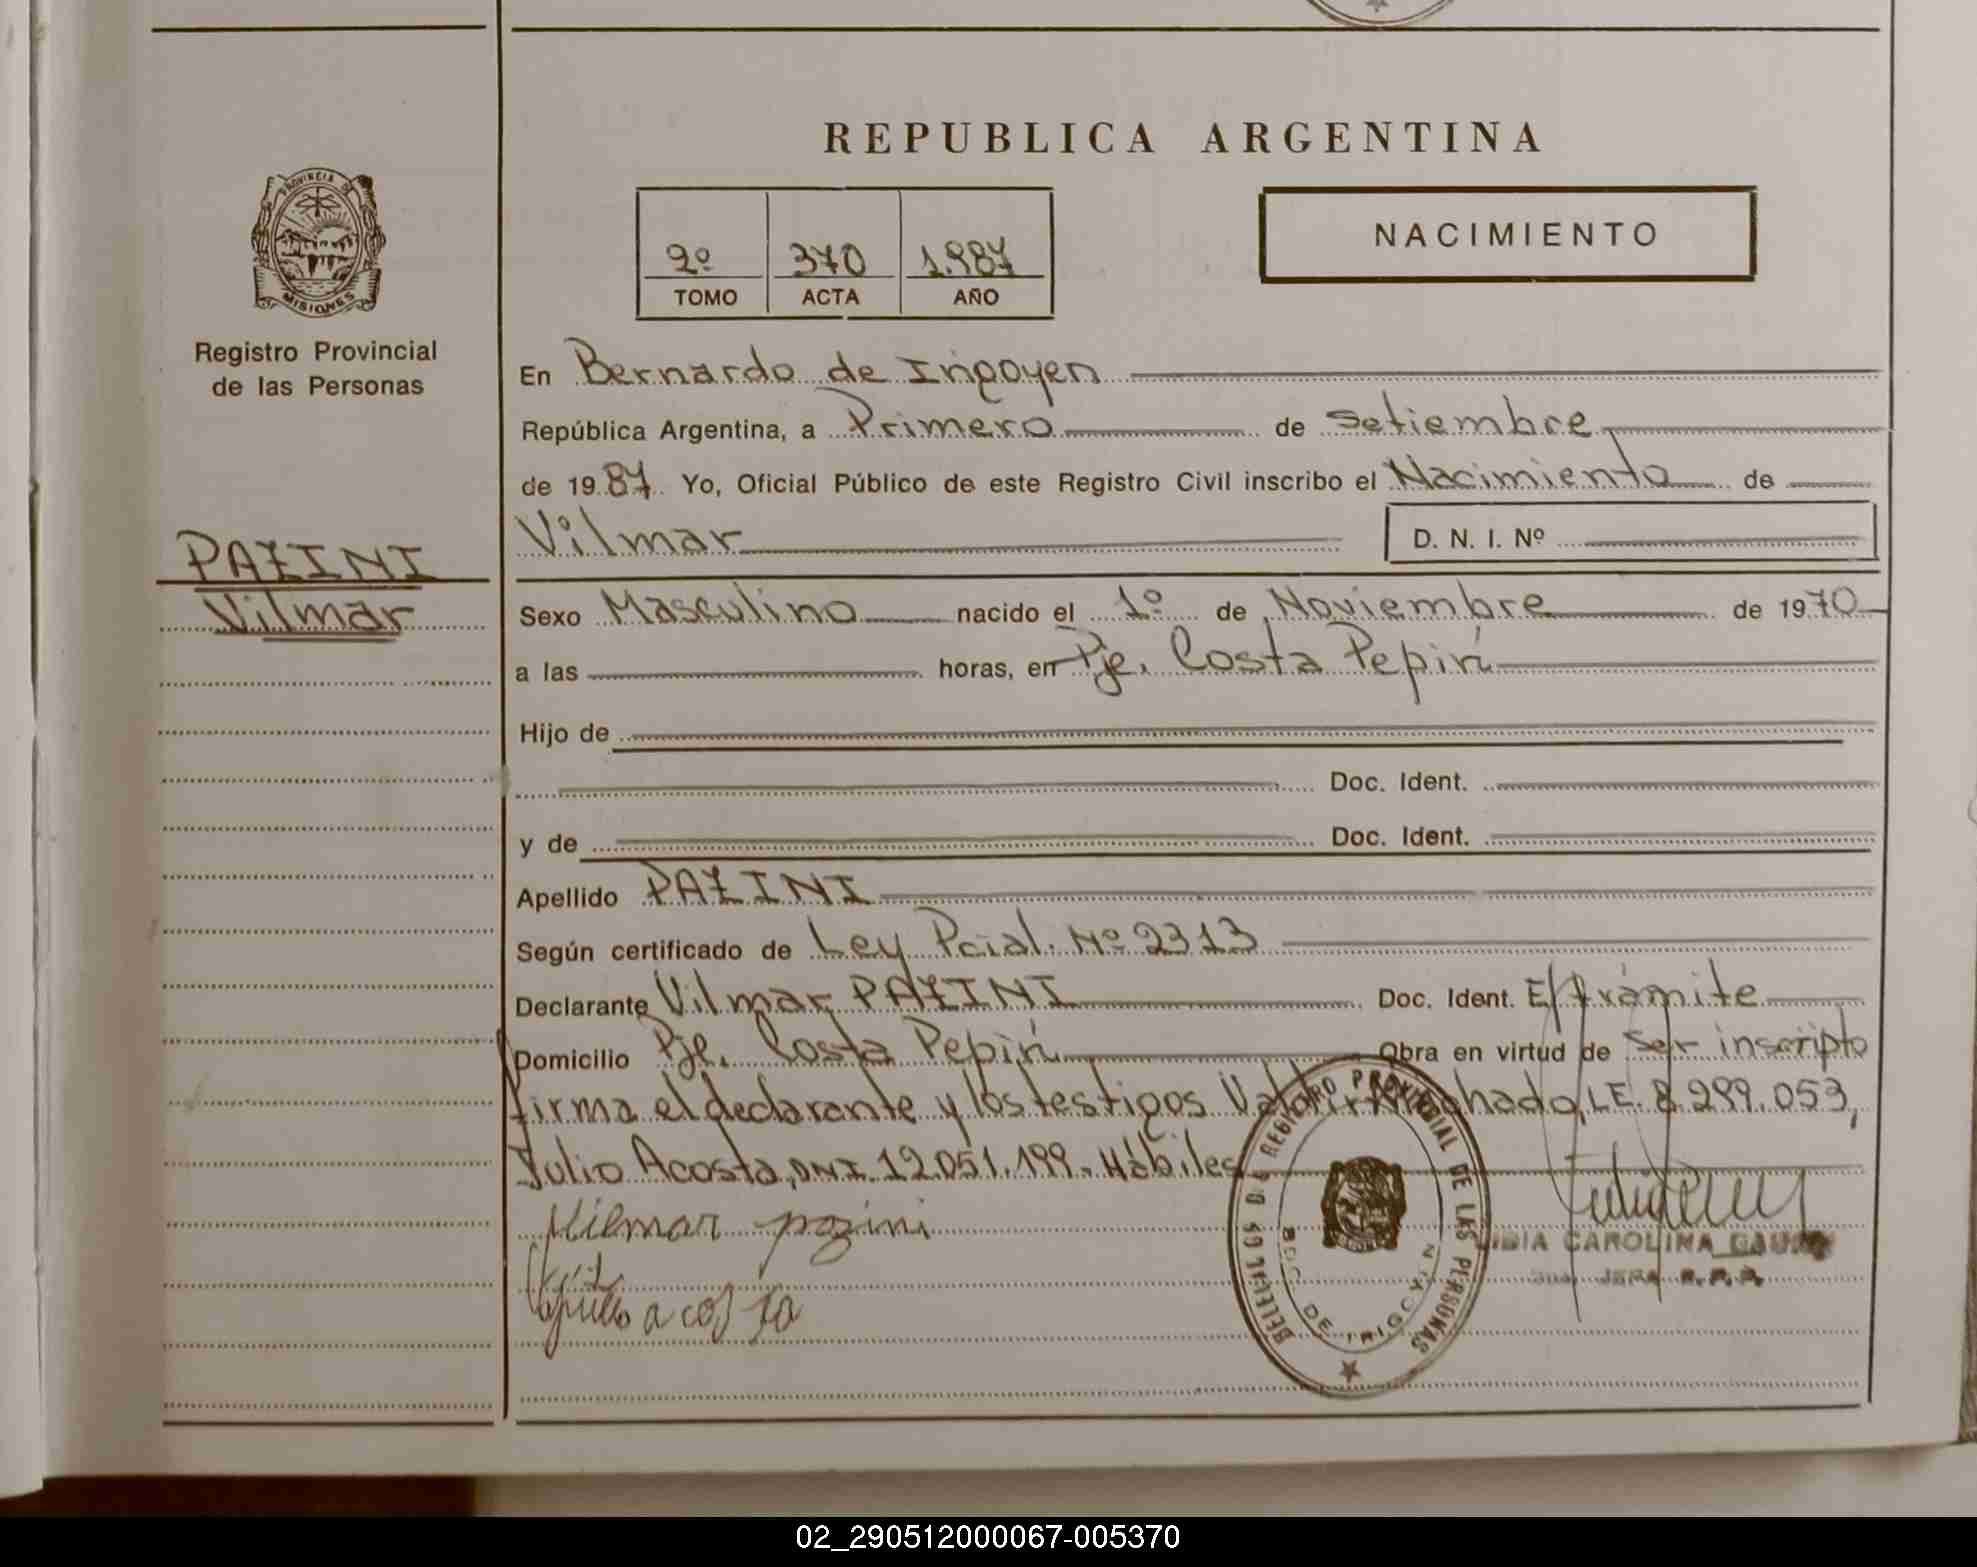 REPUBLICA ARGENTINA
PROVINCIA DE
MISIONES
Registro Provincial
de las Personas
2º 370 1.987
TOMO ACTA AÑO
NACIMIENTO
En Bernardo de Irigoyen
República Argentina, a Primero de Setiembre
de 1987 Yo, Oficial Público de este Registro Civil inscribo el Nacimiento de
Vilmar D. N. I. Nº
PAZINI
Vilmar
Sexo Masculino nacido el 1º de Noviembre de 1970
a las horas, en Pje. Costa Pepirí
Hijo de
Doc. Ident.
y de Doc. Ident.
Apellido PAZINI
Según certificado de Ley Pcial. Nº 2313
Declarante Vilmar PAZINI Doc. Ident. E/trámite
Domicilio Pje. Costa Pepirí Obra en virtud de ser inscripto
firma el declarante y los testigos Machado, LE. 8.299.053,
Julio Acosta, DNI. 12.051.199. Hábiles
Vilmar pazini
acosta
REGISTRO PROVINCIAL DE LAS PERSONAS
BDO. DE IRIGOYEN
CAROLINA
02_290512000067-005370